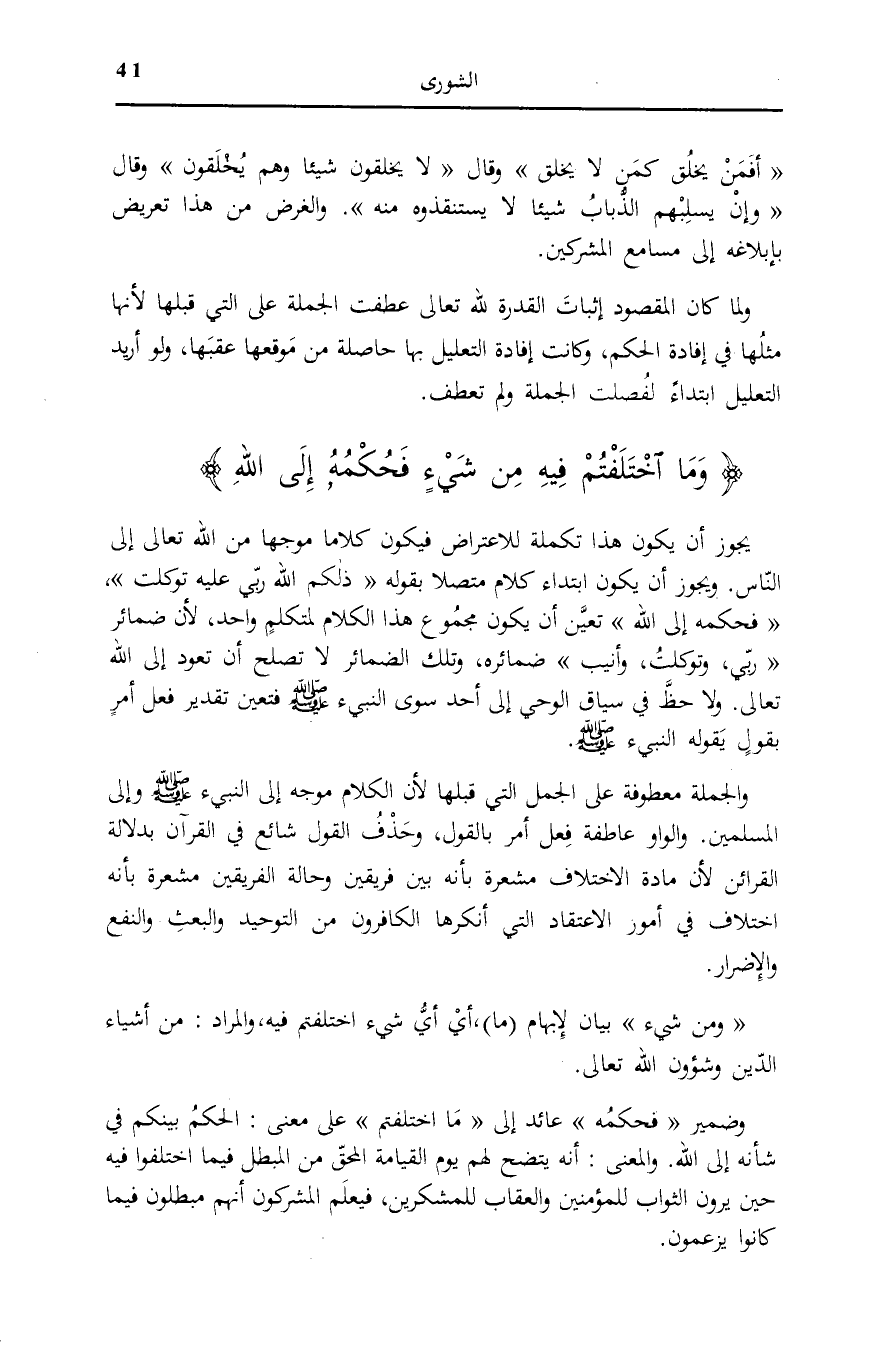 41
الشورى
« أفَمَنْ يخلُق كمَن لا يخلق » وقال « لا يخلقون شيئا وهم يُخْلَقون » وقال
« وإنْ يسلِبْهم الذُّبابُ شيئا لا يستنقذوه منه ». والغرض من هذا تعريض
بإبلاغه إلى مسامع المشركين.
ولما كان المقصود إثباتَ القدرة لله تعالى عطفت الجملة على التي قبلها لأنها
مثلُها في إفادة الحكم، وكانت إفادة التعليل بها حاصلة من مَوقعها عقبَها، ولو أريد
التعليل ابتداءً لفُصلت الجملة ولم تعطف.
﴿ وَمَا ٱخْتَلَفْتُمْ فِيهِ مِن شَيْءٍ فَحُكْمُهُۥ إِلَى اللهِ ﴾
يجوز أن يكون هذا تكملة للاعتراض فيكون كلاما موجها من الله تعالى إلى
النّاس. ويجوز أن يكون ابتداء كلام متصلا بقوله « ذٰلكم الله ربّي عليه توكلت »،
« فحكمه إلى الله » تعيَّن أن يكون مجمُوع هذا الكلام لمتكلمٍ واحد، لأن ضمائر
« ربّي، وتوكلتُ، وأنيب » ضمائره، وتلك الضمائر لا تصلح أن تعود إلى الله
تعالى. ولا حظَّ في سياق الوحي إلى أحد سوى النبيء ﷺ فتعين تقدير فعل أمرٍ
بقولٍ يَقوله النبيء ﷺ.
والجملة معطوفة على الجمل التي قبلها لأن الكلام موجه إلى النبيء ﷺ وإلى
المسلمين. والواو عاطفة فِعل أمر بالقول، وحَذْفُ القول شائع في القرآن بدلالة
القرائن لأن مادة الاختلاف مشعرة بأنه بين فريقين وحالة الفريقين مشعرة بأنه
اختلاف في أمور الاعتقاد التي أنكرها الكافرون من التوحيد والبعثِ والنفع
والإضرار.
« ومن شيء » بيان لإبهام (ما)،أيْ أيُّ شيء اختلفتم فيه،والمراد : من أشياء
الدّين وشؤون الله تعالى.
وضمير « فحكمُه » عائد إلى « مَا اختلفتم » على معنى : الحكمُ بينكم في
شأنه إلى الله. والمعنى : أنه يتضح لهم يوم القيامة المحقّ من المبطل فيما اختلفوا فيه
حين يرون الثواب للمؤمنين والعقاب للمشكرين، فيعلَم المشركون أنهم مبطلون فيما
كانوا يزعمون.